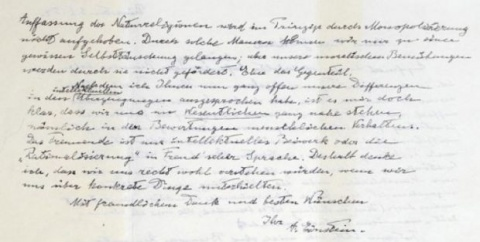 Auffassung der Naturreligionen wird im Prinzip durch Monopolisierung
nicht aufgehoben. Durch solche Mauern können wir nur zu einer
gewissen Selbsttäuschung gelangen; aber unsere moralischen Bemühungen
werden durch sie nicht gefördert. Eher das Gegenteil.
Nachdem ich Ihnen nun ganz offen unsere Differenzen
intellektuellen
in den Überzeugungen ausgesprochen habe, ist es mir doch
klar, dass wir uns im Wesentlichen ganz nahe stehen,
nämlich in den Bewertungen menschlichen Verhaltens.
Das Trennende ist nur intellektuelles Beiwerk oder die
"Rationalisierung" in Freud'scher Sprache. Deshalb denke
ich, dass wir uns recht wohl verstehen würden, wenn wir
uns über konkrete Dinge unterhielten.
Mit freundlichem Dank und besten Wünschen
Ihr A. Einstein.